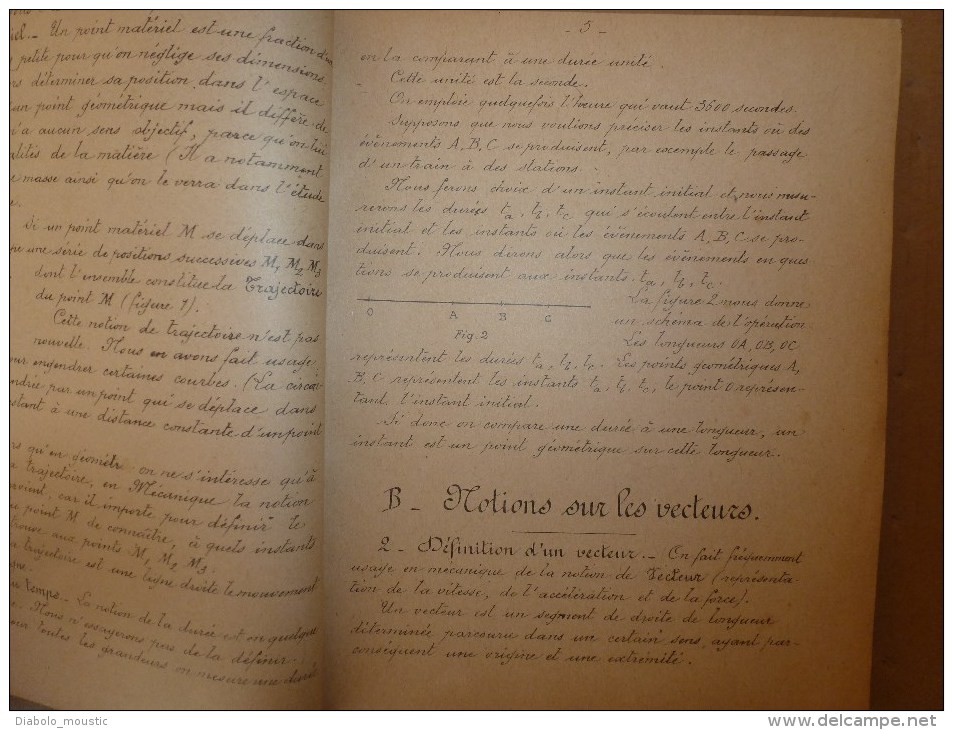 el. - Un point matériel est une fraction
petite pour qu'on néglige ses dimensions
rs déterminer sa position dans l'espace
un point géométrique mais il diffère de
n'a aucun sens objectif, parce qu'on lui
alités de la matière (Il a notamment
masse ainsi qu'on le verra dans l'étude
e.
Si un point matériel M se déplace dans
une série de positions successives M1 M2 M3
dont l'ensemble constitue la Trajectoire
du point M (figure 1).
Cette notion de trajectoire n'est pas
nouvelle. Nous en avons fait usage
our engendrer certaines courbes. (La circon
ndrée par un point qui se déplace dans
stant à une distance constante d'un point
rs qu'en géométrie on ne s'intéresse qu'à
trajectoire, en Mécanique la notion
car il importe pour définir le
u point M de connaître, à quels instants
trouve aux points M1 M2 M3
a trajectoire est une ligne droite le mouvement
gne.
temps. - La notion de la durée est en quelque
e. Nous n'essayerons pas de la définir.
our toutes les grandeurs on mesure une durée
- 5 -
on la comparant à une durée unité.
Cette unité est la seconde.
On emploie quelquefois l'heure qui vaut 3600 secondes.
Supposons que nous voulions préciser les instants où des
évènements A, B, C se produisent, par exemple le passage
d'un train à des stations.
Nous ferons choix d'un instant initial et nous mesu-
rerons les durées ta, tb, tc qui s'écoulent entre l'instant
initial et les instants où les évènements A, B, C se pro-
duisent. Nous dirons alors que les évènements en ques
tions se produisent aux instants ta, tb, tc.
La figure 2 nous donne
O A B C
un schéma de l'opération.
Fig. 2
Les longueurs OA, OB, OC
représentent les durées ta, tb, tc. Les points géométriques A,
B, C représentent les instants ta, tb, tc, le point O représen-
tant l'instant initial.
Si donc on compare une durée à une longueur, un
instant est un point géométrique sur cette longueur.
B - Notions sur les vecteurs.
2 - Définition d'un vecteur. - On fait fréquemment
usage en mécanique de la notion de Vecteur (représenta
tion de la vitesse, de l'accélération et de la force).
Un vecteur est un segment de droite de longueur
déterminée parcouru dans un certain sens, ayant par-
conséquent une origine et une extrémité.
Diabolo_moustic
delcampe.net